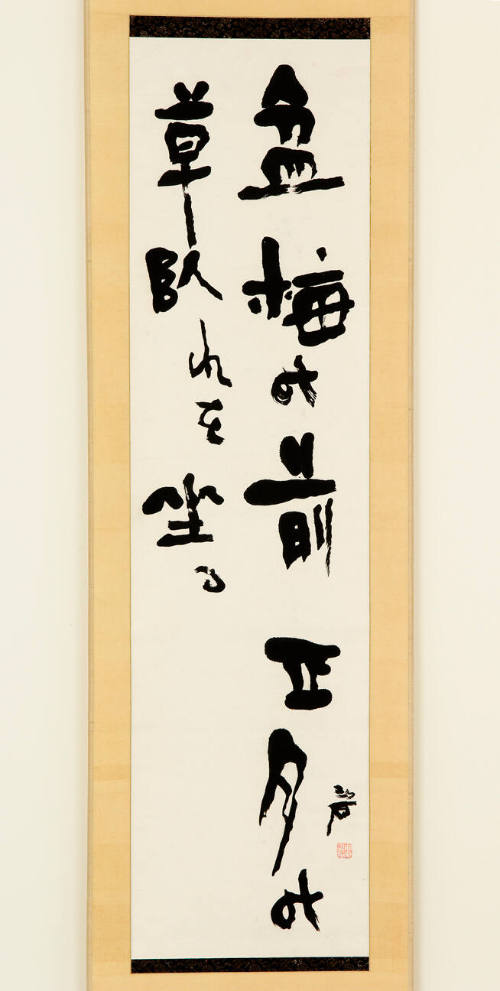 盆梅の前正月の
草臥れを坐る